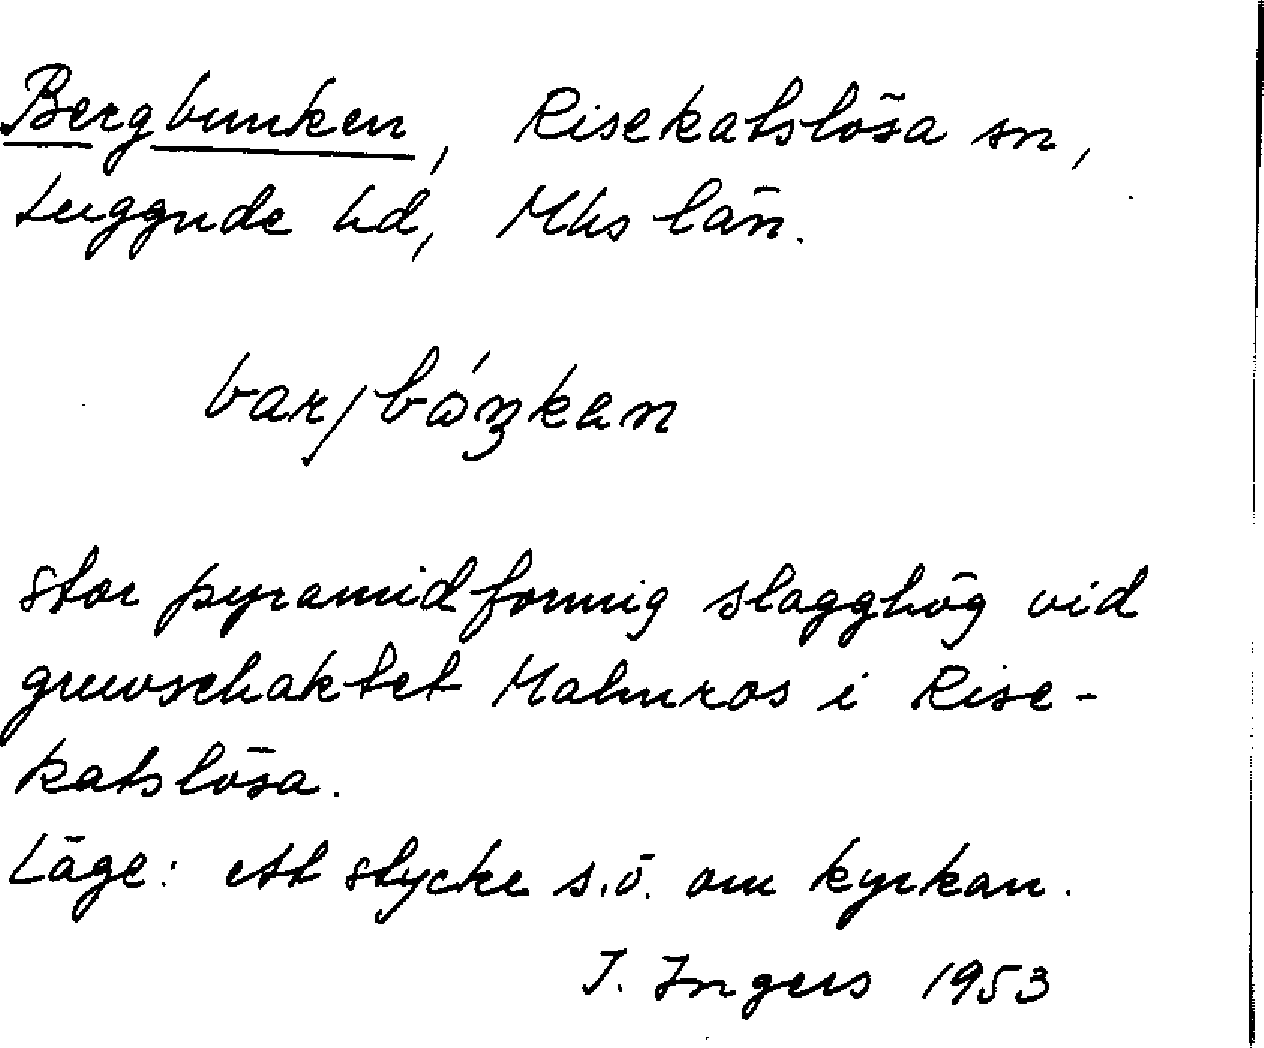 Bergbunken, Risekatslösa sn,
Luggude hd, Mhs län.
stor pyramidformig slagghög vid
gruvschaktet Malmros i Rise-
katslösa.
Läge: ett stycke s.ö. om kyrkan.
I. Ingers 1953